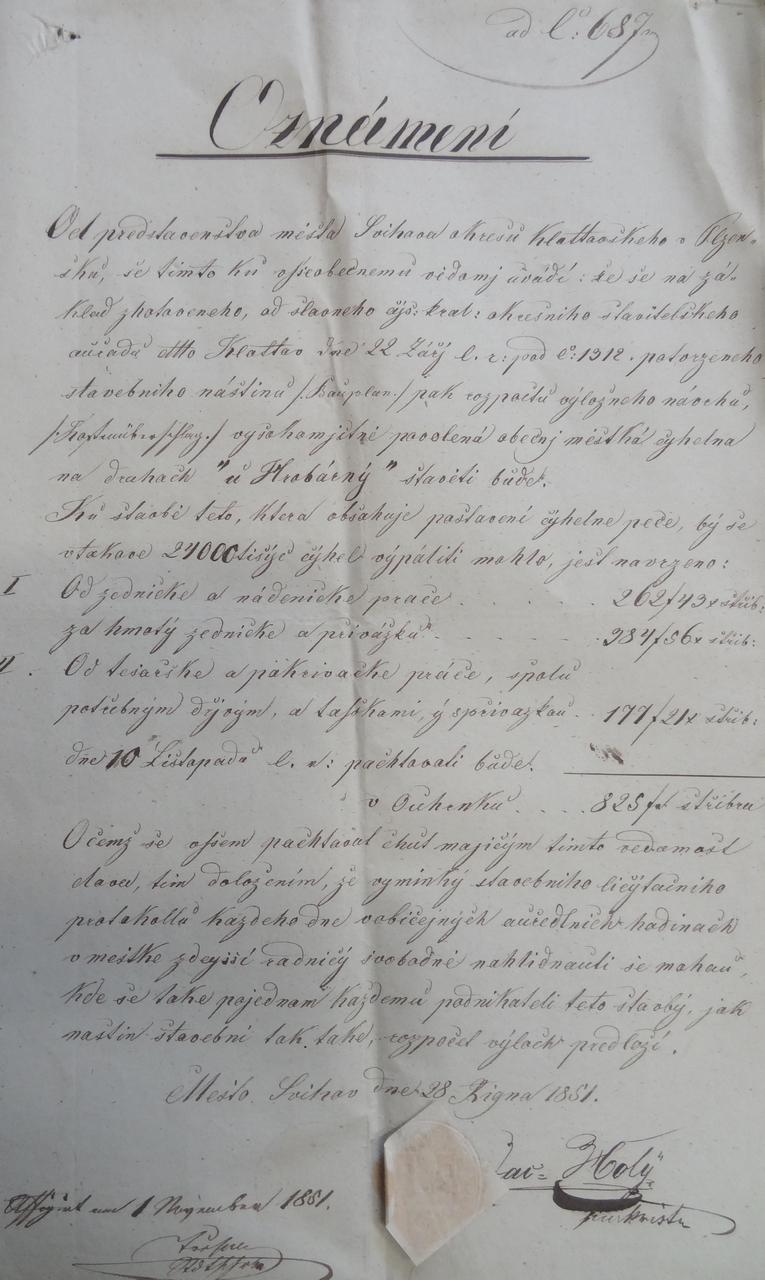 ad No: 687
Oznámení
Od predstavenstva města Svihova okresu Klattovskeho v Plzen-
sku, se timto ku osseobecnemu vědomj uvádí: že se na zá-
klad zhotoveneho, od slavneho cýs: kral: okresniho stavitelskeho
auřadu dtto Klattov dne 22 Zářý l. r: pod No: 1312. potvrzeneho
stavebniho nástinu /:Bauplan:/ pak rozpočtu výložneho návrhu,
/:Kostenüberschlag:/ vysokomjstně povolená obecnj městká cyhelna
na drahach "u Hrobárný" stavěti bude.
Ku stavbě teto, ktera obsahuje postavení cýhelne peče, bý se
v takove 24000 tisýc cýhel výpáliti mohlo, jest navrzeno:
I Od zednické a nádenické prace . . . . 262 f 43 x střib:
za hmotý zednické a přivážku . . . . 384 f 56 x střib:
II. Od tesařske a pokrivačke práce, spolu
potřebným dřjvým, a taškami, ý s přivažkou . . 177 f 21 x střib:
dne 10 Listopadu l. r: pachtovati bude.
v Ouhrnku . . . . 825 f střibra
O čemž se ossem pachtovat chuť majicým timto vědomost
dava, tim doloženim, že vyminký stavebniho licýtačniho
protokollu každeho dne v običejných auředlnich hodinach
v mestke zdejssí radnicý svobodně nahlidnauti se mohau,
kde se take pojednam každemu podnikateli teto stavbý, jak
nastin stavebni tak take, rozpočet výloch předloží.
Mesto Svihov dne 28 Řigna 1851.
Holý
purkmistr
Affigirt am 1 November 1851.